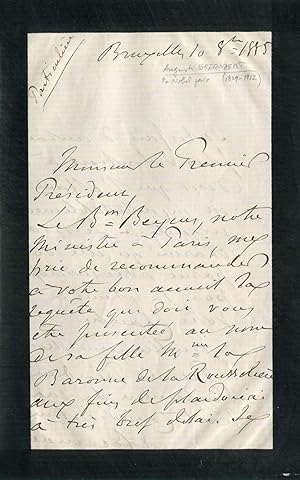 Particulière
Bruxelles 10 8bre 1885
Auguste BEERNAERT
Prix Nobel paix (1829-1912)
Monsieur le Premier
Président,
Le Bon Beyens, notre
Ministre à Paris, me
prie de recommander
à votre bon accueil la
requête qui doit vous
être présentée au nom
de sa fille Mme la
Baronne de la Rousselière
aux fins de plaidoirie
à très bref délai. Je